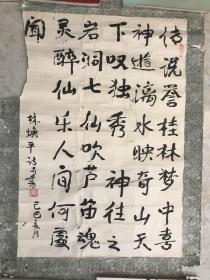 传说誉桂林梦中喜
神游漓水映奇山天
下叹独秀神往之
岩洞七仙吹芦笛魂
灵醉仙乐人间何处
闻
林焕平诗并书
己巳夏月